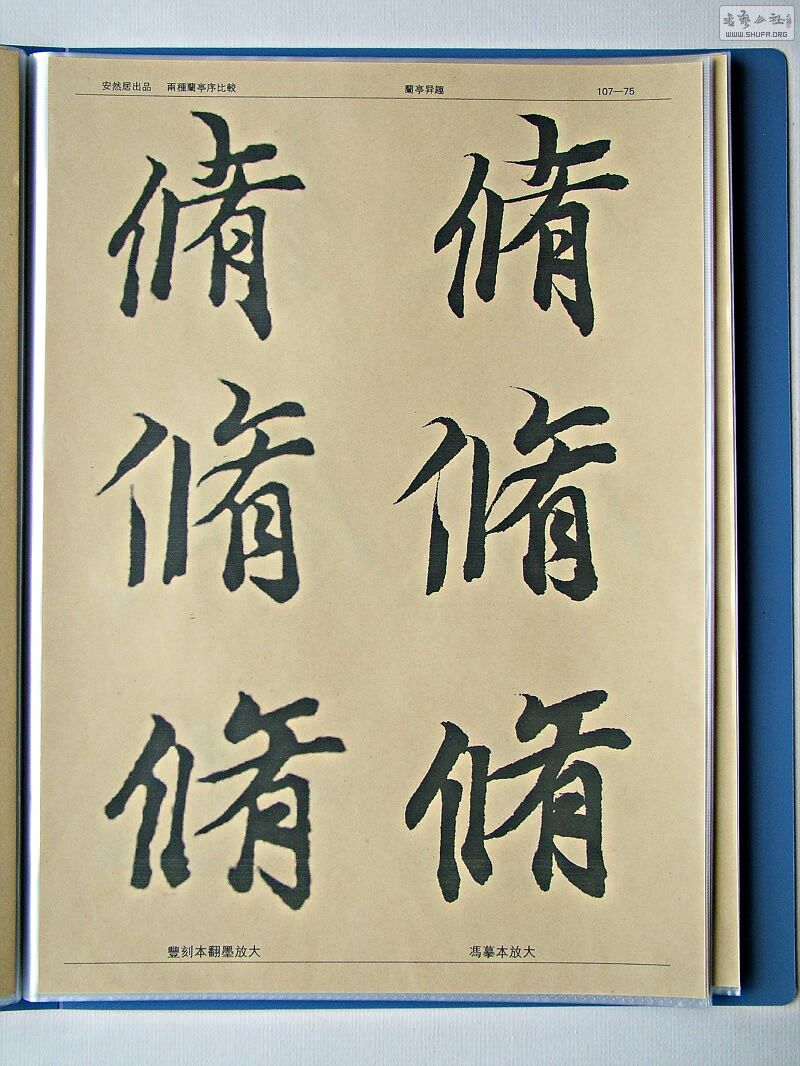 书艺公社
WWW.SHUFA.ORG
安然居出品 兩種蘭亭序比較 蘭亭异趣 107—75
脩 脩
脩 脩
脩 脩
豐刻本翻墨放大 馮摹本放大